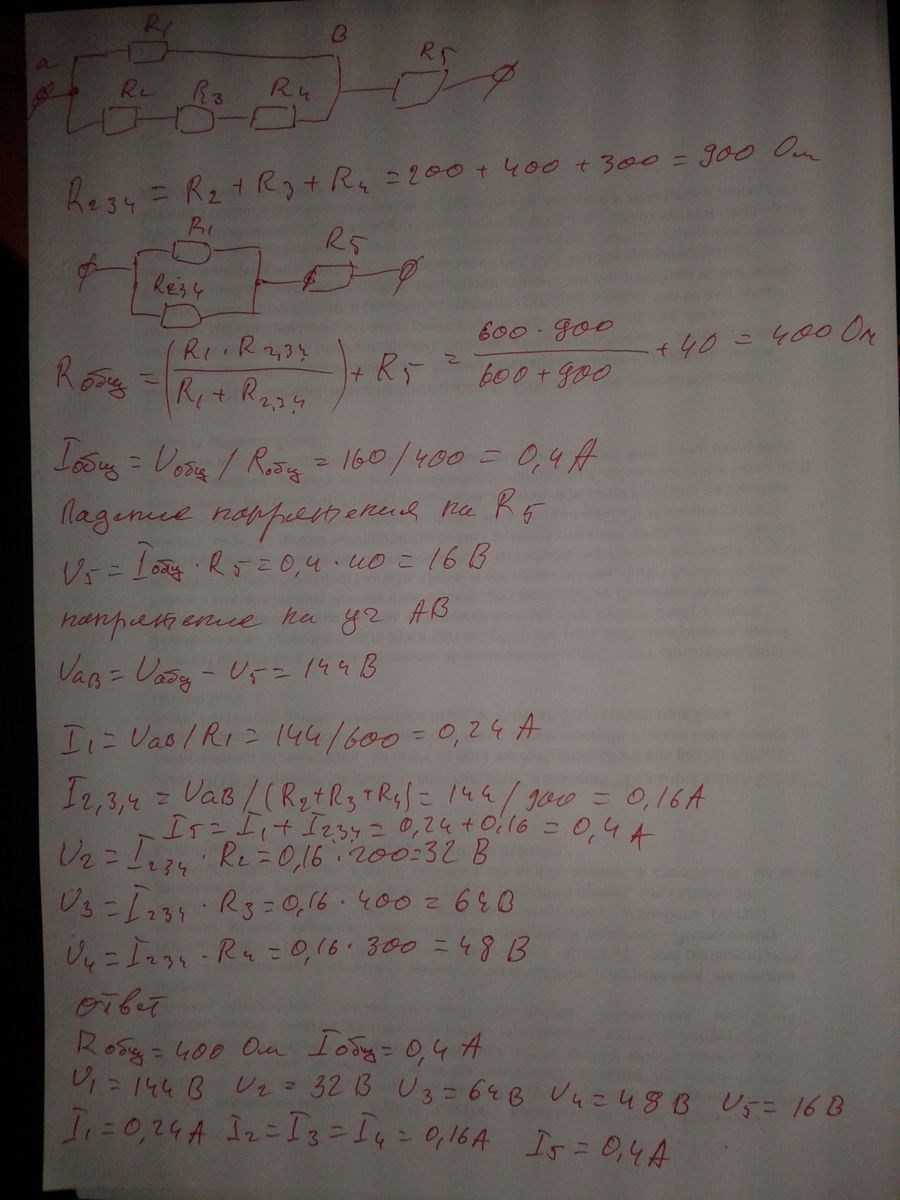 R1
a B R5
R2 R3 R4
R234 = R2 + R3 + R4 = 200 + 400 + 300 = 900 Ом
R1 R5
R234
Rобщ = (R1 · R2,3,4 / R1 + R2,3,4) + R5 = 600 · 900 / 600 + 900 + 40 = 400 Ом
Iобщ = Uобщ / Rобщ = 160 / 400 = 0,4 А
Падение напряжения на R5
U5 = Iобщ · R5 = 0,4 · 40 = 16 В
напряжение на уч АВ
UaB = Uобщ - U5 = 144 В
I1 = UaB / R1 = 144 / 600 = 0,24 А
I2,3,4 = UaB / (R2+R3+R4) = 144 / 900 = 0,16 А
I5 = I1 + I234 = 0,24 + 0,16 = 0,4 А
U2 = I234 · R2 = 0,16 · 200 = 32 В
U3 = I234 · R3 = 0,16 · 400 = 64 В
U4 = I234 · R4 = 0,16 · 300 = 48 В
ответ
Rобщ = 400 Ом Iобщ = 0,4 А
U1 = 144 В U2 = 32 В U3 = 64 В U4 = 48 В U5 = 16 В
I1 = 0,24 А I2 = I3 = I4 = 0,16 А I5 = 0,4 А